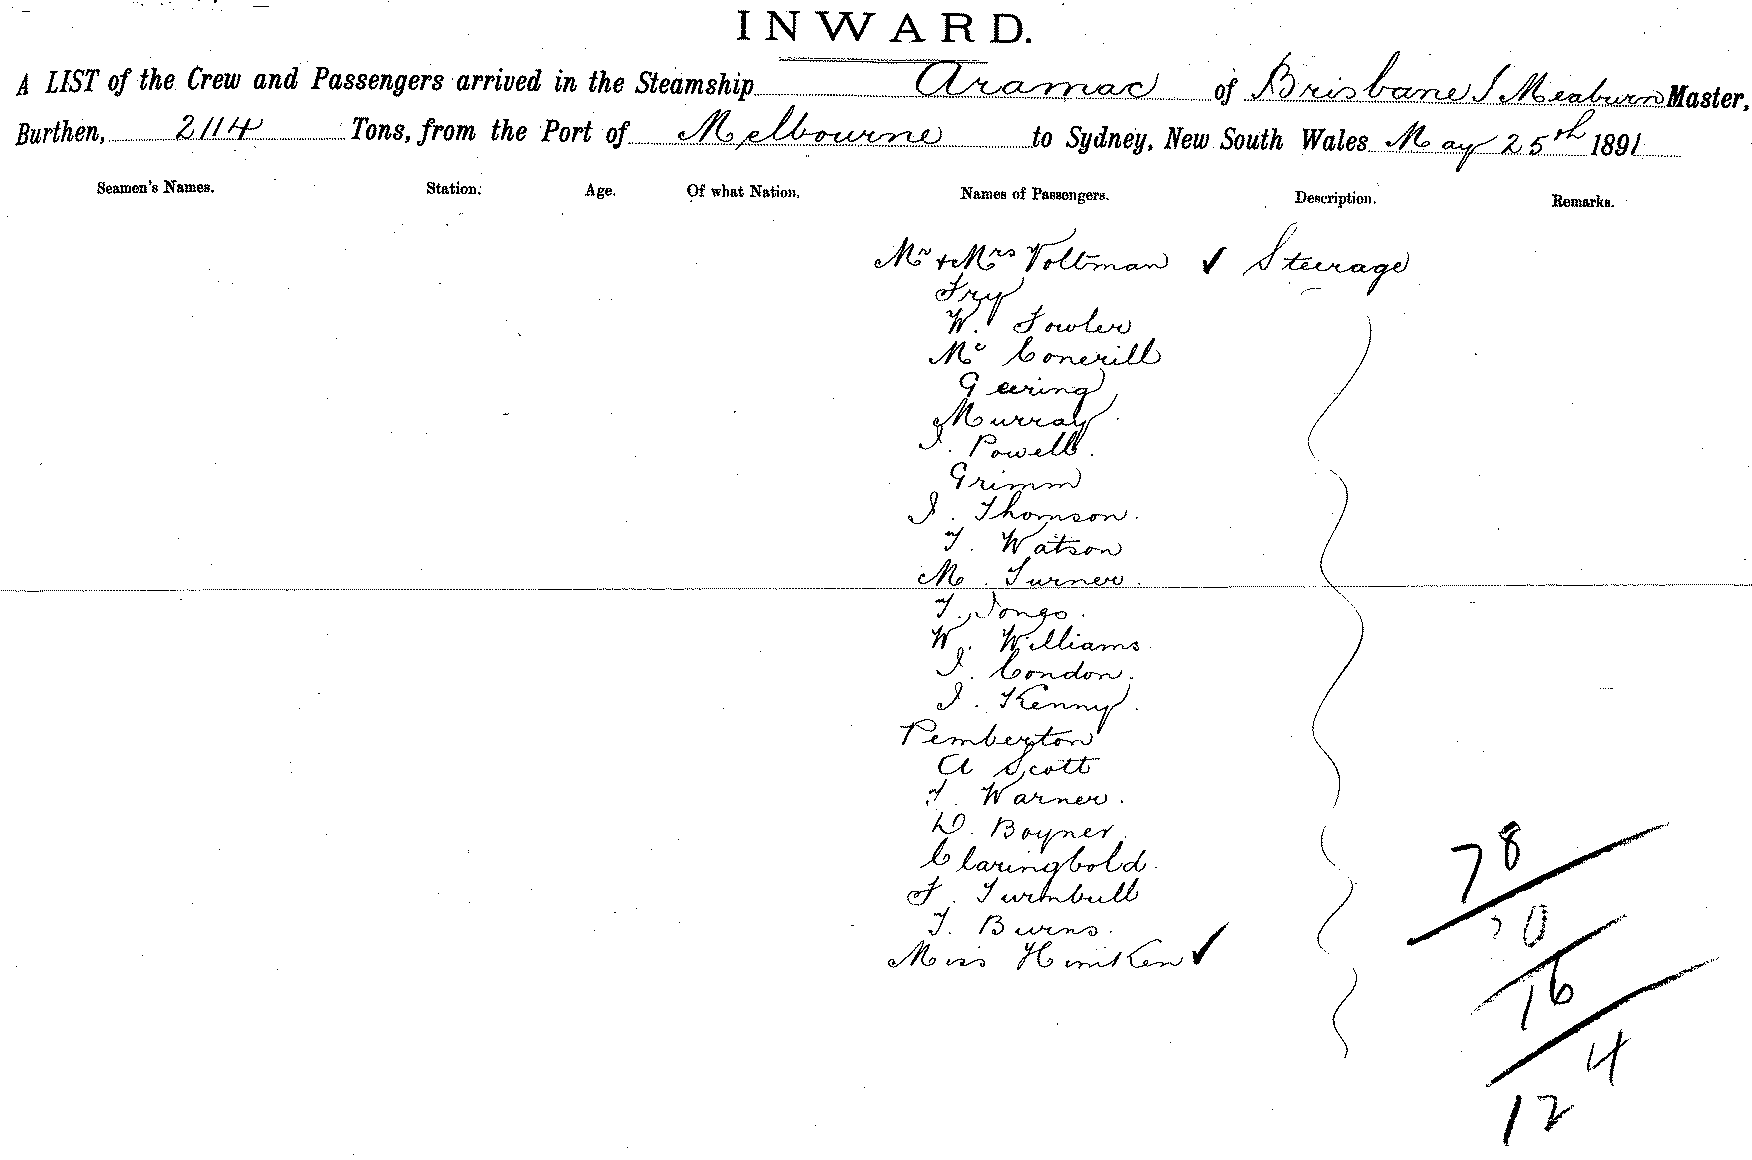 INWARD.
A LIST of the Crew and Passengers arrived in the Steamship Aramac of Brisbane J Meaburn Master,
Burthen, 2114 Tons, from the Port of Melbourne to Sydney, New South Wales May 25th 1891
Seamen's Names. Station. Age. Of what Nation. Names of Passengers. Description. Remarks.
Mr + Mrs Voltman ✓ Steerage
Fry
W. Fowler
Mc Conerill
Geering
Murray
J. Powell.
Grimm
J. Thomson.
T. Watson
M. Turner.
T. Jones.
W. Williams.
J. Condon.
J. Kenny.
Pemberton
A Scott
T. Warner.
D. Boyner.
Claringbold.
F. Turnbull
T. Burns.
Miss Hiniken ✓
78
70
16
4
12